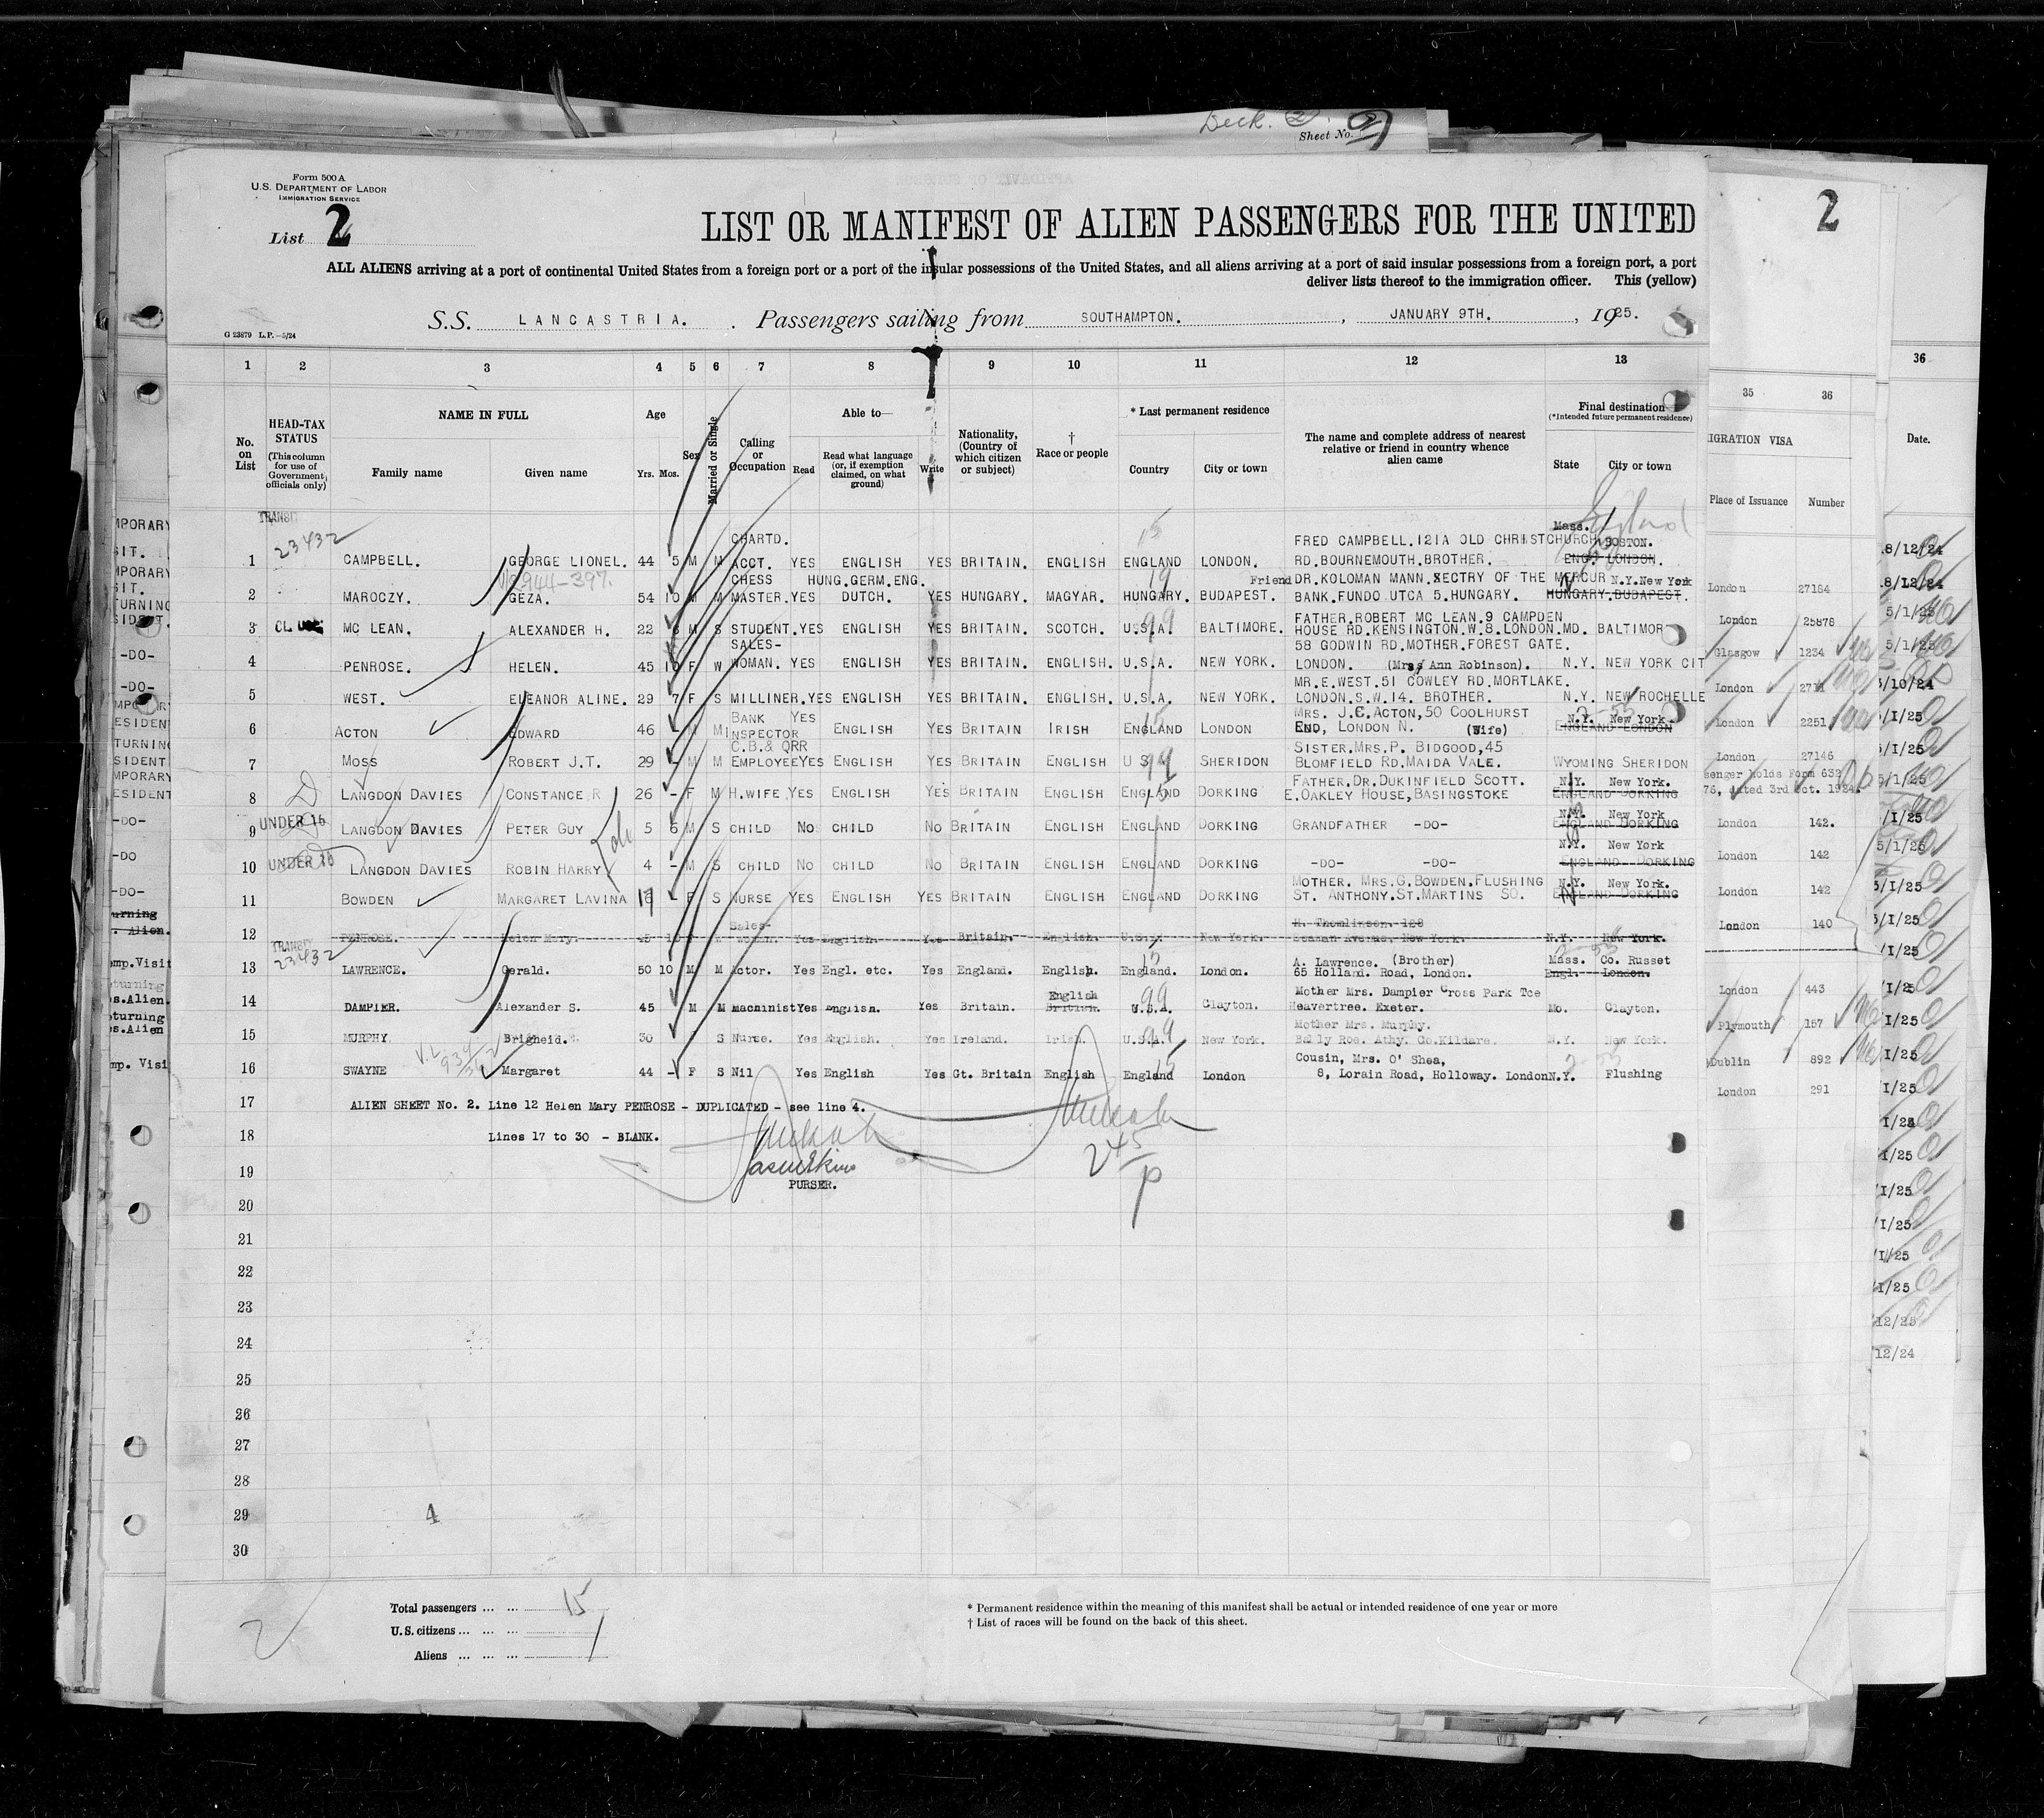 Deck. 2.
Sheet No. 2
Form 500 A
U.S. DEPARTMENT OF LABOR
IMMIGRATION SERVICE
List 2
2
LIST OR MANIFEST OF ALIEN PASSENGERS FOR THE UNITED
ALL ALIENS arriving at a port of continental United States from a foreign port or a port of the insular possessions of the United States, and all aliens arriving at a port of said insular possessions from a foreign port, a port
deliver lists thereof to the immigration officer. This (yellow)
S.S. LANCASTRIA. Passengers sailing from SOUTHAMPTON. , JANUARY 9TH. , 1925.
G 23879 L.P.—5/24
1 2 3 4 5 6 7 8 9 10 11 12 13 35 36 36
No. on List
HEAD-TAX STATUS
(This column for use of Government officials only)
NAME IN FULL
Family name Given name
Age
Yrs. Mos.
Sex
Married or Single
Calling or Occupation
Able to—
Read
Read what language (or, if exemption claimed, on what ground)
Write
Nationality, (Country of which citizen or subject)
† Race or people
* Last permanent residence
Country City or town
The name and complete address of nearest relative or friend in country whence alien came
Final destination
(*Intended future permanent residence)
State City or town
IGRATION VISA
Place of Issuance Number
Date.
TRANSIT
23432
CHARTD. FRED CAMPBELL.121A OLD CHRISTCHURCH Mass. BOSTON.
1 CAMPBELL. GEORGE LIONEL. 44 5 M M ACCT. YES ENGLISH YES BRITAIN. ENGLISH ENGLAND LONDON. RD.BOURNEMOUTH.BROTHER. ENG. LONDON.
CHESS HUNG.GERM.ENG. Friend DR.KOLOMAN MANN.SECTRY OF THE MERCUR N.Y. New York
2 MAROCZY. GEZA. 54 10 M M MASTER. YES DUTCH. YES HUNGARY. MAGYAR. HUNGARY. BUDAPEST. BANK.FUNDO UTCA 5.HUNGARY. HUNGARY.BUDAPEST.
London 27184
FATHER.ROBERT MC LEAN.9 CAMPDEN
3 MC LEAN. ALEXANDER H. 22 6 M S STUDENT. YES ENGLISH YES BRITAIN. SCOTCH. U.S.A. BALTIMORE. HOUSE RD.KENSINGTON.W.8.LONDON. MD. BALTIMOR
London 25878
SALES- 58 GODWIN RD.MOTHER.FOREST GATE.
4 PENROSE. HELEN. 45 10 F W WOMAN. YES ENGLISH YES BRITAIN. ENGLISH. U.S.A. NEW YORK. LONDON. (Mrs Ann Robinson). N.Y. NEW YORK CIT
Glasgow 1234
MR.E.WEST.51 COWLEY RD.MORTLAKE.
5 WEST. ELEANOR ALINE. 29 7 F S MILLINER. YES ENGLISH YES BRITAIN. ENGLISH. U.S.A. NEW YORK. LONDON.S.W.14. BROTHER. N.Y. NEW ROCHELLE
London
BANK MRS. J.C.ACTON,50 COOLHURST N.Y. New York
6 ACTON EDWARD 46 - M M INSPECTOR YES ENGLISH YES BRITAIN IRISH ENGLAND LONDON END, LONDON N. (Wife) ENGLAND LONDON
London 2251
C.B.& QRR SISTER.MRS.P. BIDGOOD,45
7 MOSS ROBERT J.T. 29 - M M EMPLOYEE YES ENGLISH YES BRITAIN ENGLISH U S A SHERIDON BLOMFIELD RD.MAIDA VALE. WYOMING SHERIDON
London 27146
senger holds Form 632
76, dated 3rd Oct. 1924.
FATHER.DR.DUKINFIELD SCOTT. N.Y. New York.
8 LANGDON DAVIES CONSTANCE R 26 - F M H.WIFE YES ENGLISH YES BRITAIN ENGLISH ENGLAND DORKING E.OAKLEY HOUSE,BASINGSTOKE ENGLAND DORKING
UNDER 16 N.Y. New York
9 LANGDON DAVIES PETER GUY 5 6 M S CHILD NO CHILD NO BRITAIN ENGLISH ENGLAND DORKING GRANDFATHER -DO- ENGLAND DORKING
London 142.
UNDER 16 N.Y. New York
10 LANGDON DAVIES ROBIN HARRY 4 - M S CHILD NO CHILD NO BRITAIN ENGLISH ENGLAND DORKING -DO- -DO- ENGLAND DORKING
London 142
MOTHER. MRS.G.BOWDEN.FLUSHING N.Y. New York.
11 BOWDEN MARGARET LAVINA F S NURSE YES ENGLISH YES BRITAIN ENGLISH ENGLAND DORKING ST. ANTHONY.ST.MARTINS SO. ENGLAND DORKING
London 142
Sales- H. Thomlinson. 128
12 PENROSE. Helen Mary. 45 10 F W woman. Yes English. Yes Britain. English. U.S.A. New York. Seaman Avenue, New York. N.Y. New York.
London 140
TRANSIT
23432
A. Lawrence. (Brother) Mass. Co. Russet
13 LAWRENCE. Gerald. 50 10 M M Actor. Yes Engl. etc. Yes England. English. England. London. 65 Holland. Road, London. Engl. London.
London 443
English Mother Mrs. Dampier Cross Park Tce
14 DAMPIER. Alexander S. 45 M M Machinist Yes English. Yes Britain. British. U.S.A. Clayton. Heavertree. Exeter. Mo. Clayton.
Plymouth 157
Mother Mrs. Murphy.
15 MURPHY Brigheid. 30 S Nurse. Yes English. Yes Ireland. Irish. U.S.A. New York. Bally Roe. Athy. Co.Kildare. N.Y. New York.
Dublin 892
Cousin, Mrs. O' Shea,
16 SWAYNE Margaret 44 - F S Nil Yes English Yes Gt. Britain English England London 8, Lorain Road, Holloway. London N.Y. Flushing
London 291
17 ALIEN SHEET No. 2. Line 12 Helen Mary PENROSE - DUPLICATED - see line 4.
18 Lines 17 to 30 - BLANK.
19
PURSER.
245
P
20
21
22
23
24
25
26
27
28
29 4
30
2
Total passengers ... ... 15
U.S. citizens ... ... ...
Aliens ... ... ...
* Permanent residence within the meaning of this manifest shall be actual or intended residence of one year or more
† List of races will be found on the back of this sheet.